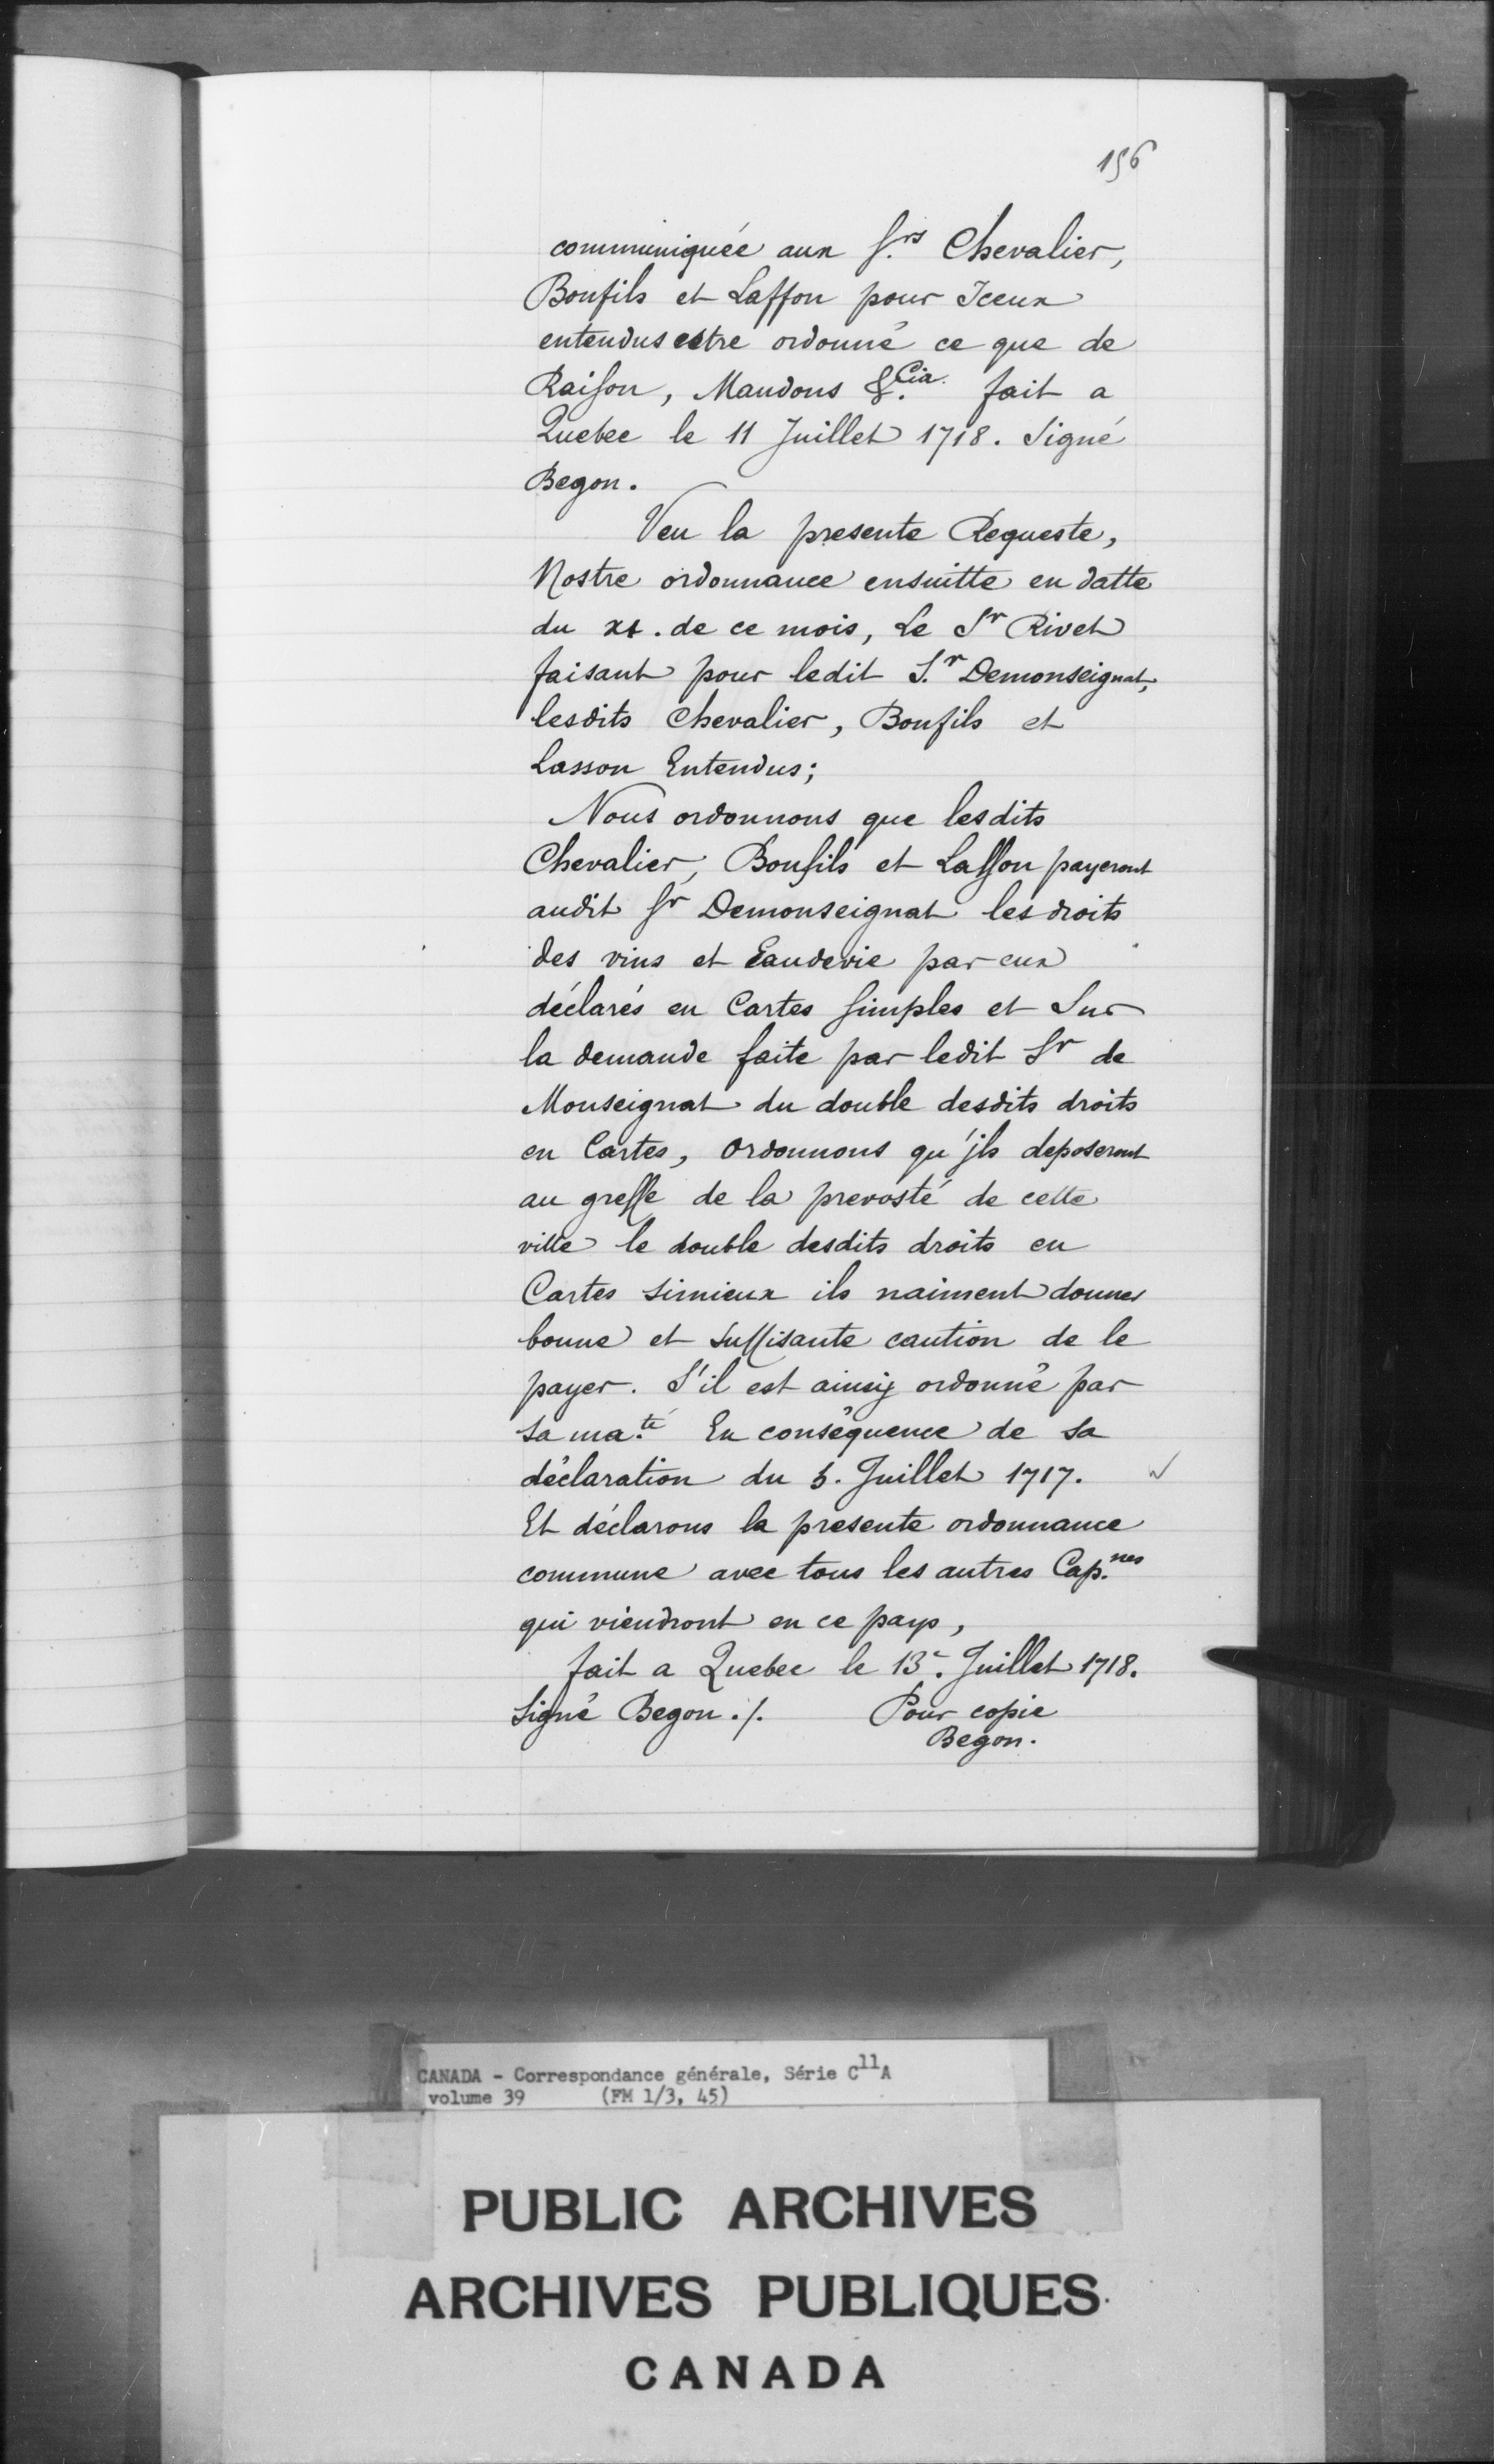 156
communiquée aux Srs. Chevalier,
Bonfils et Laffon pour Iceux
entendus estre ordonné ce que de
Raison, Mandons &.Cia. fait a
Quebec le 11 Juillet 1718. Signé
Begon.
Veu la presente Requeste,
Nostre ordonnance ensuitte en datte
du xi. de ce mois, Le Sr Rivet
faisant pour ledit S.r Demonseignat,
lesdits Chevalier, Bonfils et
Lasson Entendus;
Nous ordonnons que lesdits
Chevalier, Bonfils et Laffon payeront
audit Sr Demonseignat les droits
des vins et Eaudevie par eux
déclarés en Cartes simples et Sur
la demande faite par ledit Sr de
Monseignat du double desdits droits
en Cartes, ordonnons qu'jls deposeront
au greffe de la prevosté de cette
ville le double desdits droits en
Cartes simieux ils naiment donner
bonne et suffisante caution de le
payer. S'il est ainsy ordonné par
sa ma.té En conséquence de sa
déclaration du 5. Juillet 1717.
Et déclarons la presente ordonnance
commune avec tous les autres Cap.nes
qui viendront en ce pays,
fait a Quebec le 13e. Juillet 1718.
Signé Begon ./. Pour copie
Begon.
CANADA - Correspondance générale, Série C11A
volume 39 (FM 1/3, 45)
PUBLIC ARCHIVES
ARCHIVES PUBLIQUES
CANADA